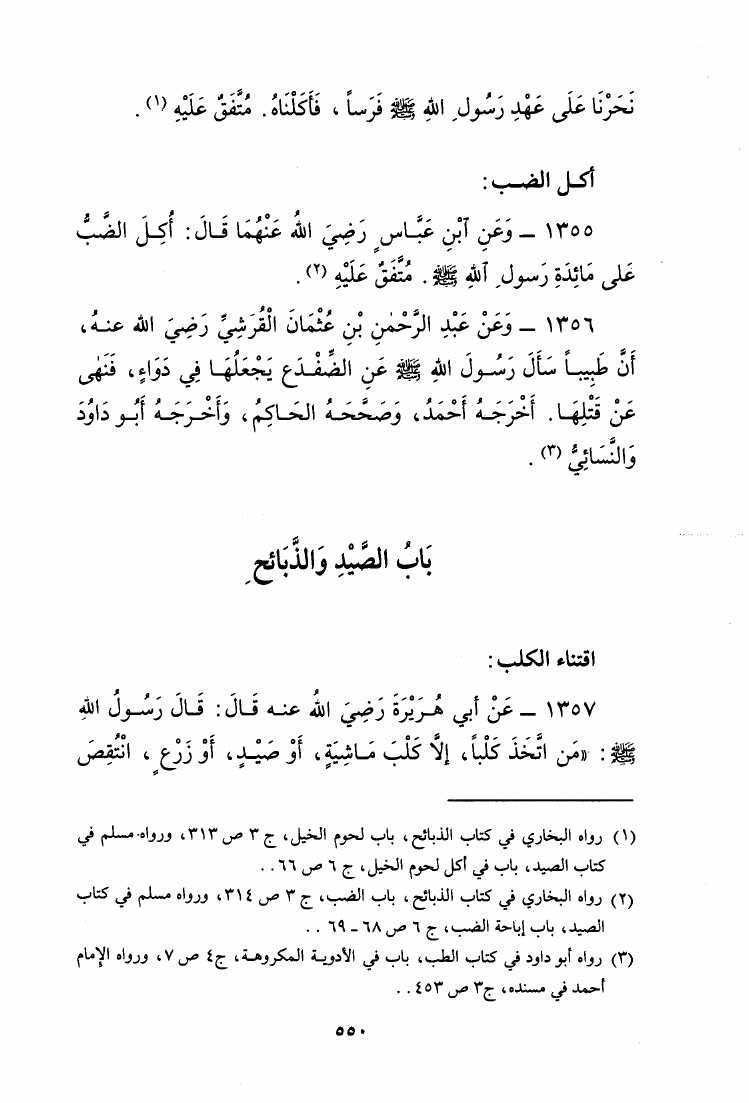 نَحَرْنَا عَلَى عَهْدِ رَسُولِ اللهِ ﷺ فَرَساً ، فَأَكَلْنَاهُ. مُتَّفَقٌ عَلَيْهِ (١) .
أكـل الضـب :
١٣٥٥ ــ وَعَنِ آبْنِ عَبَّاسٍ رَضِيَ اللهُ عَنْهُمَا قَالَ: أُكِلَ الضَّبُّ
عَلى مَائِدَةِ رَسولِ آللهِ ﷺ . مُتَّفَقٌ عَلَيْهِ (٢) .
١٣٥٦ ــ وَعَنْ عَبْدِ الرَّحْمٰنِ بْنِ عُثْمَانَ الْقُرَشِيِّ رَضِيَ الله عنـهُ،
أَنَّ طَبِيبـاً سَأَلَ رَسُـولَ اللهِ ﷺ عَنِ الضِّفْـدَعِ يَجْعَلُهَـا فِي دَوَاءٍ، فَنَهٰى
عَنْ قَتْلِهَـا. أَخْرَجَـهُ أَحْمَدُ، وَصَحَّحَـهُ الحَـاكِمُ، وَأَخْـرَجَـهُ أَبُـو دَاوُدَ
وَالنَّسَائِيُّ (٣) .
بَابُ الصَّيْدِ وَالذَّبَائحِ
اقتناء الكلب :
١٣٥٧ ــ عَنْ أبي هُـرَيْرَةَ رَضِيَ اللهُ عنـه قَالَ: قَـالَ رَسُـولُ اللهِ
ﷺ : «مَن اتَّخَذَ كَلْباً، إلاَّ كَلْبَ مَـاشِيَةٍ، أَوْ صَيْـدٍ، أَوْ زَرْعٍ ، انْتُقِصَ
(١) رواه البخاري في كتاب الذبائح، باب لحوم الخيل، ج ٣ ص ٣١٣، ورواه مسلم في
كتاب الصيد، باب في أكل لحوم الخيل، ج ٦ ص ٦٦. .
(٢) رواه البخاري في كتاب الذبائح، باب الضب، ج ٣ ص ٣١٤، ورواه مسلم في كتاب
الصيد، باب إباحة الضب، ج ٦ ص ٦٨ ـ ٦٩ . .
(٣) رواه أبو داود في كتاب الطب، باب في الأدويـة المكروهـة، ج٤ ص ٧، ورواه الإمام
أحمد في مسنده، ج٣ ص ٤٥٣. .
٥٥٠